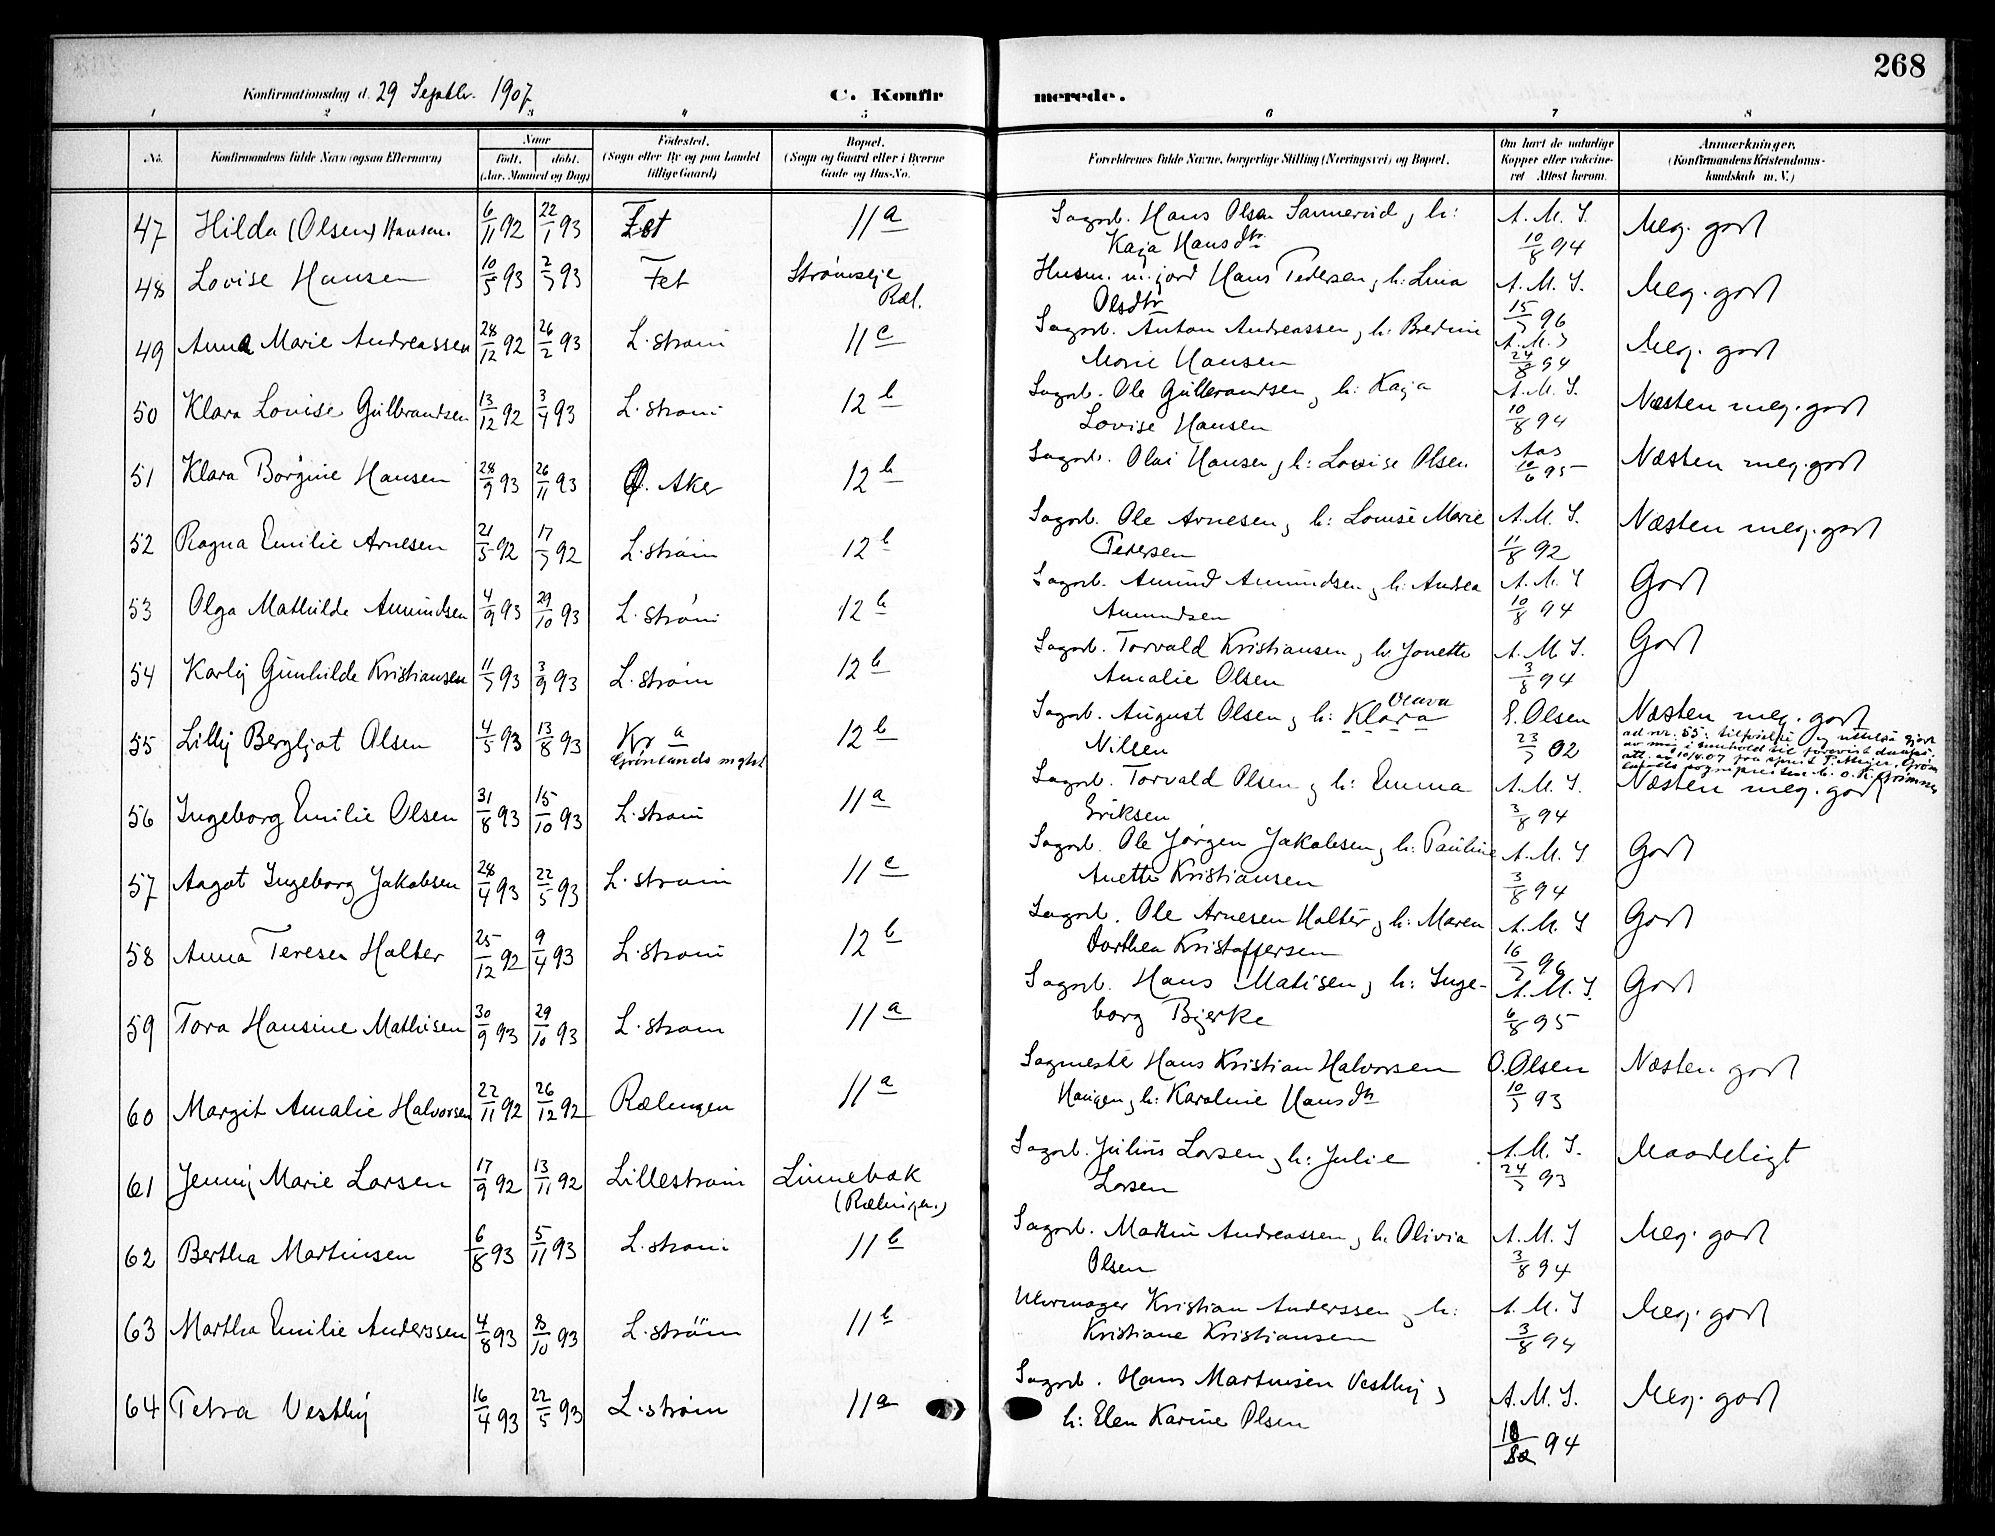 268
Konfirmationsdag d. 29 Septbr. 1907
C. Konfirmerede.
1 2 3 4 5 6 7 8
No. Konfirmandens fulde Navn (ogsaa Efternavn) Naar født. døbt. (Aar, Maaned og Dag) Fødested. (Sogn eller By og paa Landet tillige Gaard) Bopæl. (Sogn og Gaard eller i Byerne Gade og Hus-No. Forældrenes fulde Navne, borgerlige Stilling (Næringsvei) og Bopæl. Om havt de naturlige Kopper eller vakcineret Attest herom. Anmærkninger. (Konfirmandens Kristendomskundskab m. V.)
47 Hilda (Olsen) Hansen. 6/11 92 22/1 93 Fet 11a Sagarb. Hans Olsen Sannerud, h: A. M. S. Meg. godt
Kaja Hansdtr. 10/8 94
48 Lovise Hansen 10/5 93 2/7 93 Fet Strømseje Husm. m. jord Hans Pedersen, h: Lina A. M. S. Meg. godt
Ræl. Olsdtr 15/7 96
49 Anna Marie Andreassen 28/12 92 26/2 93 L.strøm 11c Sagarb. Anton Andreassen, h: Bredine A. M. S Meg. godt
Marie Hansen 24/8 94
50 Klara Louise Gulbrandsen 13/12 92 3/4 93 L.strøm 12b Sagarb. Ole Gulbrandsen, h: Kaja A. M. S. Næsten meg. godt
Lovise Hansen 10/8 94
51 Klara Borgine Hansen 28/9 93 26/11 93 Ø. Aker 12b Sagarb. Olai Hansen, h: Lovise Olsen Aas 10/6 95 Næsten meg. godt
52 Ragna Emilie Arnesen 21/5 92 17/7 92 L.strøm 12b Sagarb. Ole Arnesen, h: Louise Marie A. M. S. Næsten meg. godt
Pedersen 11/8 92
53 Olga Mathilde Amundsen 4/9 93 29/10 93 L.strøm 12b Sagarb. Amund Amundsen, h: Andrea A. M. S Godt
Amundsen 10/8 94
54 Karly Gunhilde Kristiansen 11/7 93 3/9 93 L.strøm 12b Sagarb. Torvald Kristiansen, h: Jonette A. M. S. Godt
Amalie Olsen 3/8 94
55 Lilly Bergljot Olsen 4/5 93 13/8 93 Kr a 12b Sagarb. August Olsen, h: Klara Olava S. Olsen Næsten meg. godt
Grønlands mght Nilsen 23/7 02
ad nr. 55: tilføielse og rettelse gjort
av mig i henhold til
att. av 10/4 07 fra sgnpr. Grøn
lands sogn
56 Ingeborg Emilie Olsen 31/8 93 15/10 93 L.strøm 11a Sagarb. Torvald Olsen, h: Emma A. M. S. Næsten meg. godt
Eriksen 3/8 94
57 Aagot Ingeborg Jakobsen 28/4 93 22/5 93 L.strøm 11c Sagarb. Ole Jørgen Jakobsen, h: Pauline A. M. S Godt
Anette Kristiansen 3/8 94
58 Anna Teresen Halter 25/12 92 9/4 93 L.strøm 12b Sagarb. Ole Arnesen Halter, h: Maren A. M. S Godt
Dorthea Kristoffersen 16/7 96
59 Tora Hansine Mathisen 30/9 93 29/10 93 L.strøm 11a Sagarb. Hans Matisen, h: Inge- A. M. S. Godt
borg Bjerke 6/8 95
60 Margit Amalie Halvorsen 22/11 92 26/12 92 Rælingen 11a Sagmester Hans Kristian Halvorsen O. Olsen Næsten godt
Haugen, h: Karoline Hansdtr 10/7 93
61 Jenny Marie Larsen 17/9 92 13/11 92 Lillestrøm Linnebæk Sagarb. Julius Larsen, h: Julie A. M. S. Maadeligt
(Rælingen.) Larsen 24/7 93
62 Bertha Martinsen 6/8 93 5/11 93 L.strøm 11b Sagarb. Martin Andreassen, h. Olivia A. M. S Meg. godt
Olsen 3/8 94
63 Martha Emilie Anderssen 4/8 93 8/10 93 L.strøm 11b Uhrmager Kristian Anderssen, h: A. M. S Meg. godt
Kristiane Kristiansen 3/8 94
64 Petra Vestby 16/4 93 22/5 93 L.strøm 11a Sagarb. Hans Martinsen Vestby, A. M. S. Meg. godt
h: Elen Karine Olsen 94